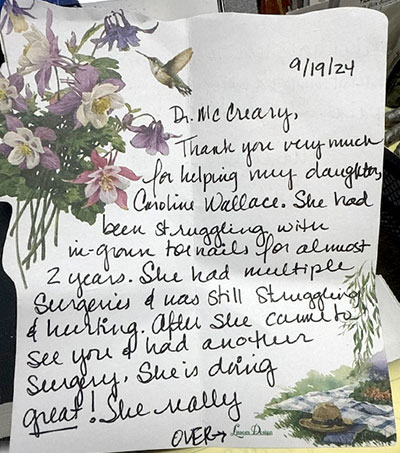 9/19/24
Dr. McCreary,
Thank you very much
for helping my daughter,
Caroline Wallace. She had
been struggling with
in-grown toenails for almost
2 years. She had multiple
surgeries & was still struggling
& hurting. After she came to
see you & had another
surgery, she is doing
great! She really
OVER→